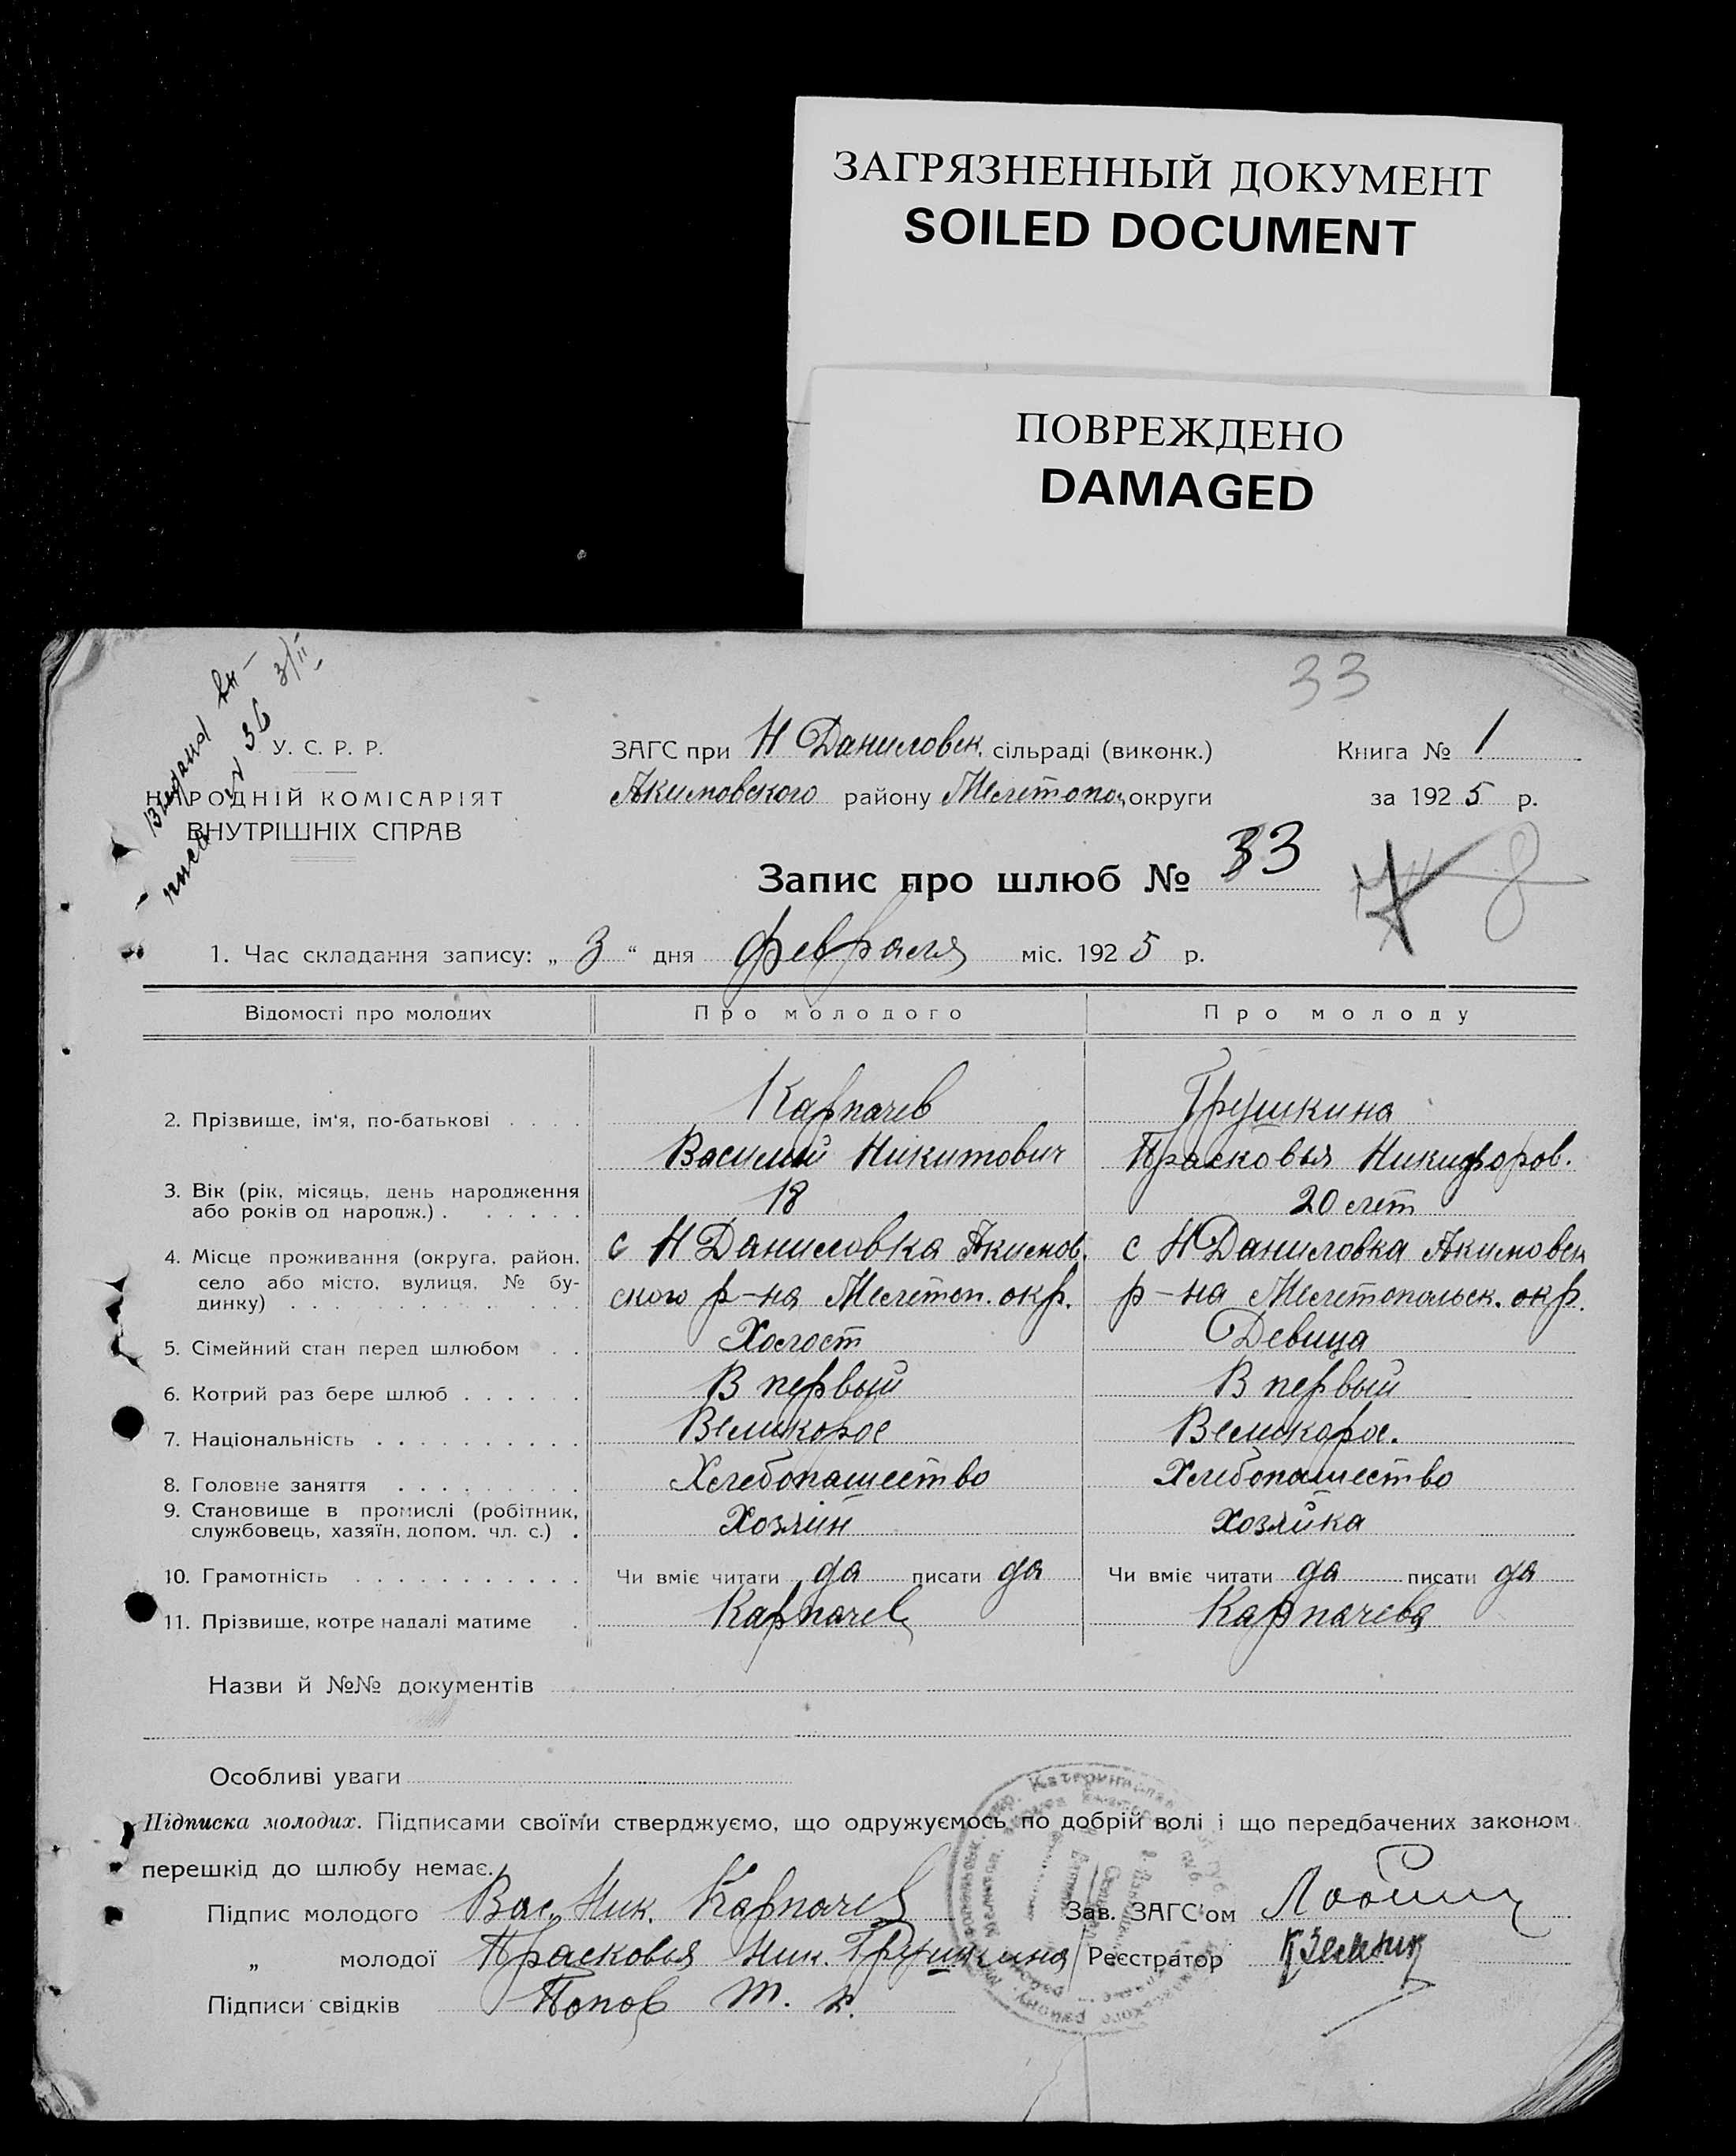 ЗАГРЯЗНЕННЫЙ ДОКУМЕНТ
SOILED DOCUMENT
ПОВРЕЖДЕНО
DAMAGED
33
№ 36 3/II
У. С. Р. Р.
НАРОДНІЙ КОМІСАРІЯТ
ВНУТРІШНІХ СПРАВ
ЗАГС при Н Даниловск. сільраді (виконк.)
Акимовского району Мелитопол. округи
Книга № 1
за 1925 р.
Запис про шлюб № 33
1. Час складання запису: „ 3 “ дня февраля міс. 1925 р.
Відомості про молодих Про молодого Про молоду
2. Прізвище, ім'я, по-батькові Карпачев Трушкина
Василий Никитович Прасковья Никифоров.
3. Вік (рік, місяць, день народження
або років од народж.) 18 20 лет
4. Місце проживання (округа, район, с Н Даниловка Акимов. с Н Даниловка Акимовск
село або місто, вулиця, № бу-
динку) ского р-на Мелитоп. окр. р-на Мелитопольск. окр.
5. Сімейний стан перед шлюбом Холост Девица
6. Котрий раз бере шлюб В первый В первый
7. Національність Великорос Великорос.
8. Головне заняття Хлебопашество Хлебопашество
9. Становище в промислі (робітник,
службовець, хазяїн, допом. чл. с.) Хозяин Хозяйка
10. Грамотність Чи вміє читати да писати да Чи вміє читати да писати да
11. Прізвище, котре надалі матиме Карпачев Карпачева
Назви й №№ документів
Особливі уваги
Підписка молодих. Підписами своїми стверджуємо, що одружуємось по добрій волі і що передбачених законом
перешкід до шлюбу немає.
Підпис молодого Вас. Ник. Карпачев Зав. ЗАГС'ом
„ молодої Прасковья Ник. Трушкина Реєстратор
Підписи свідків Попов Т.